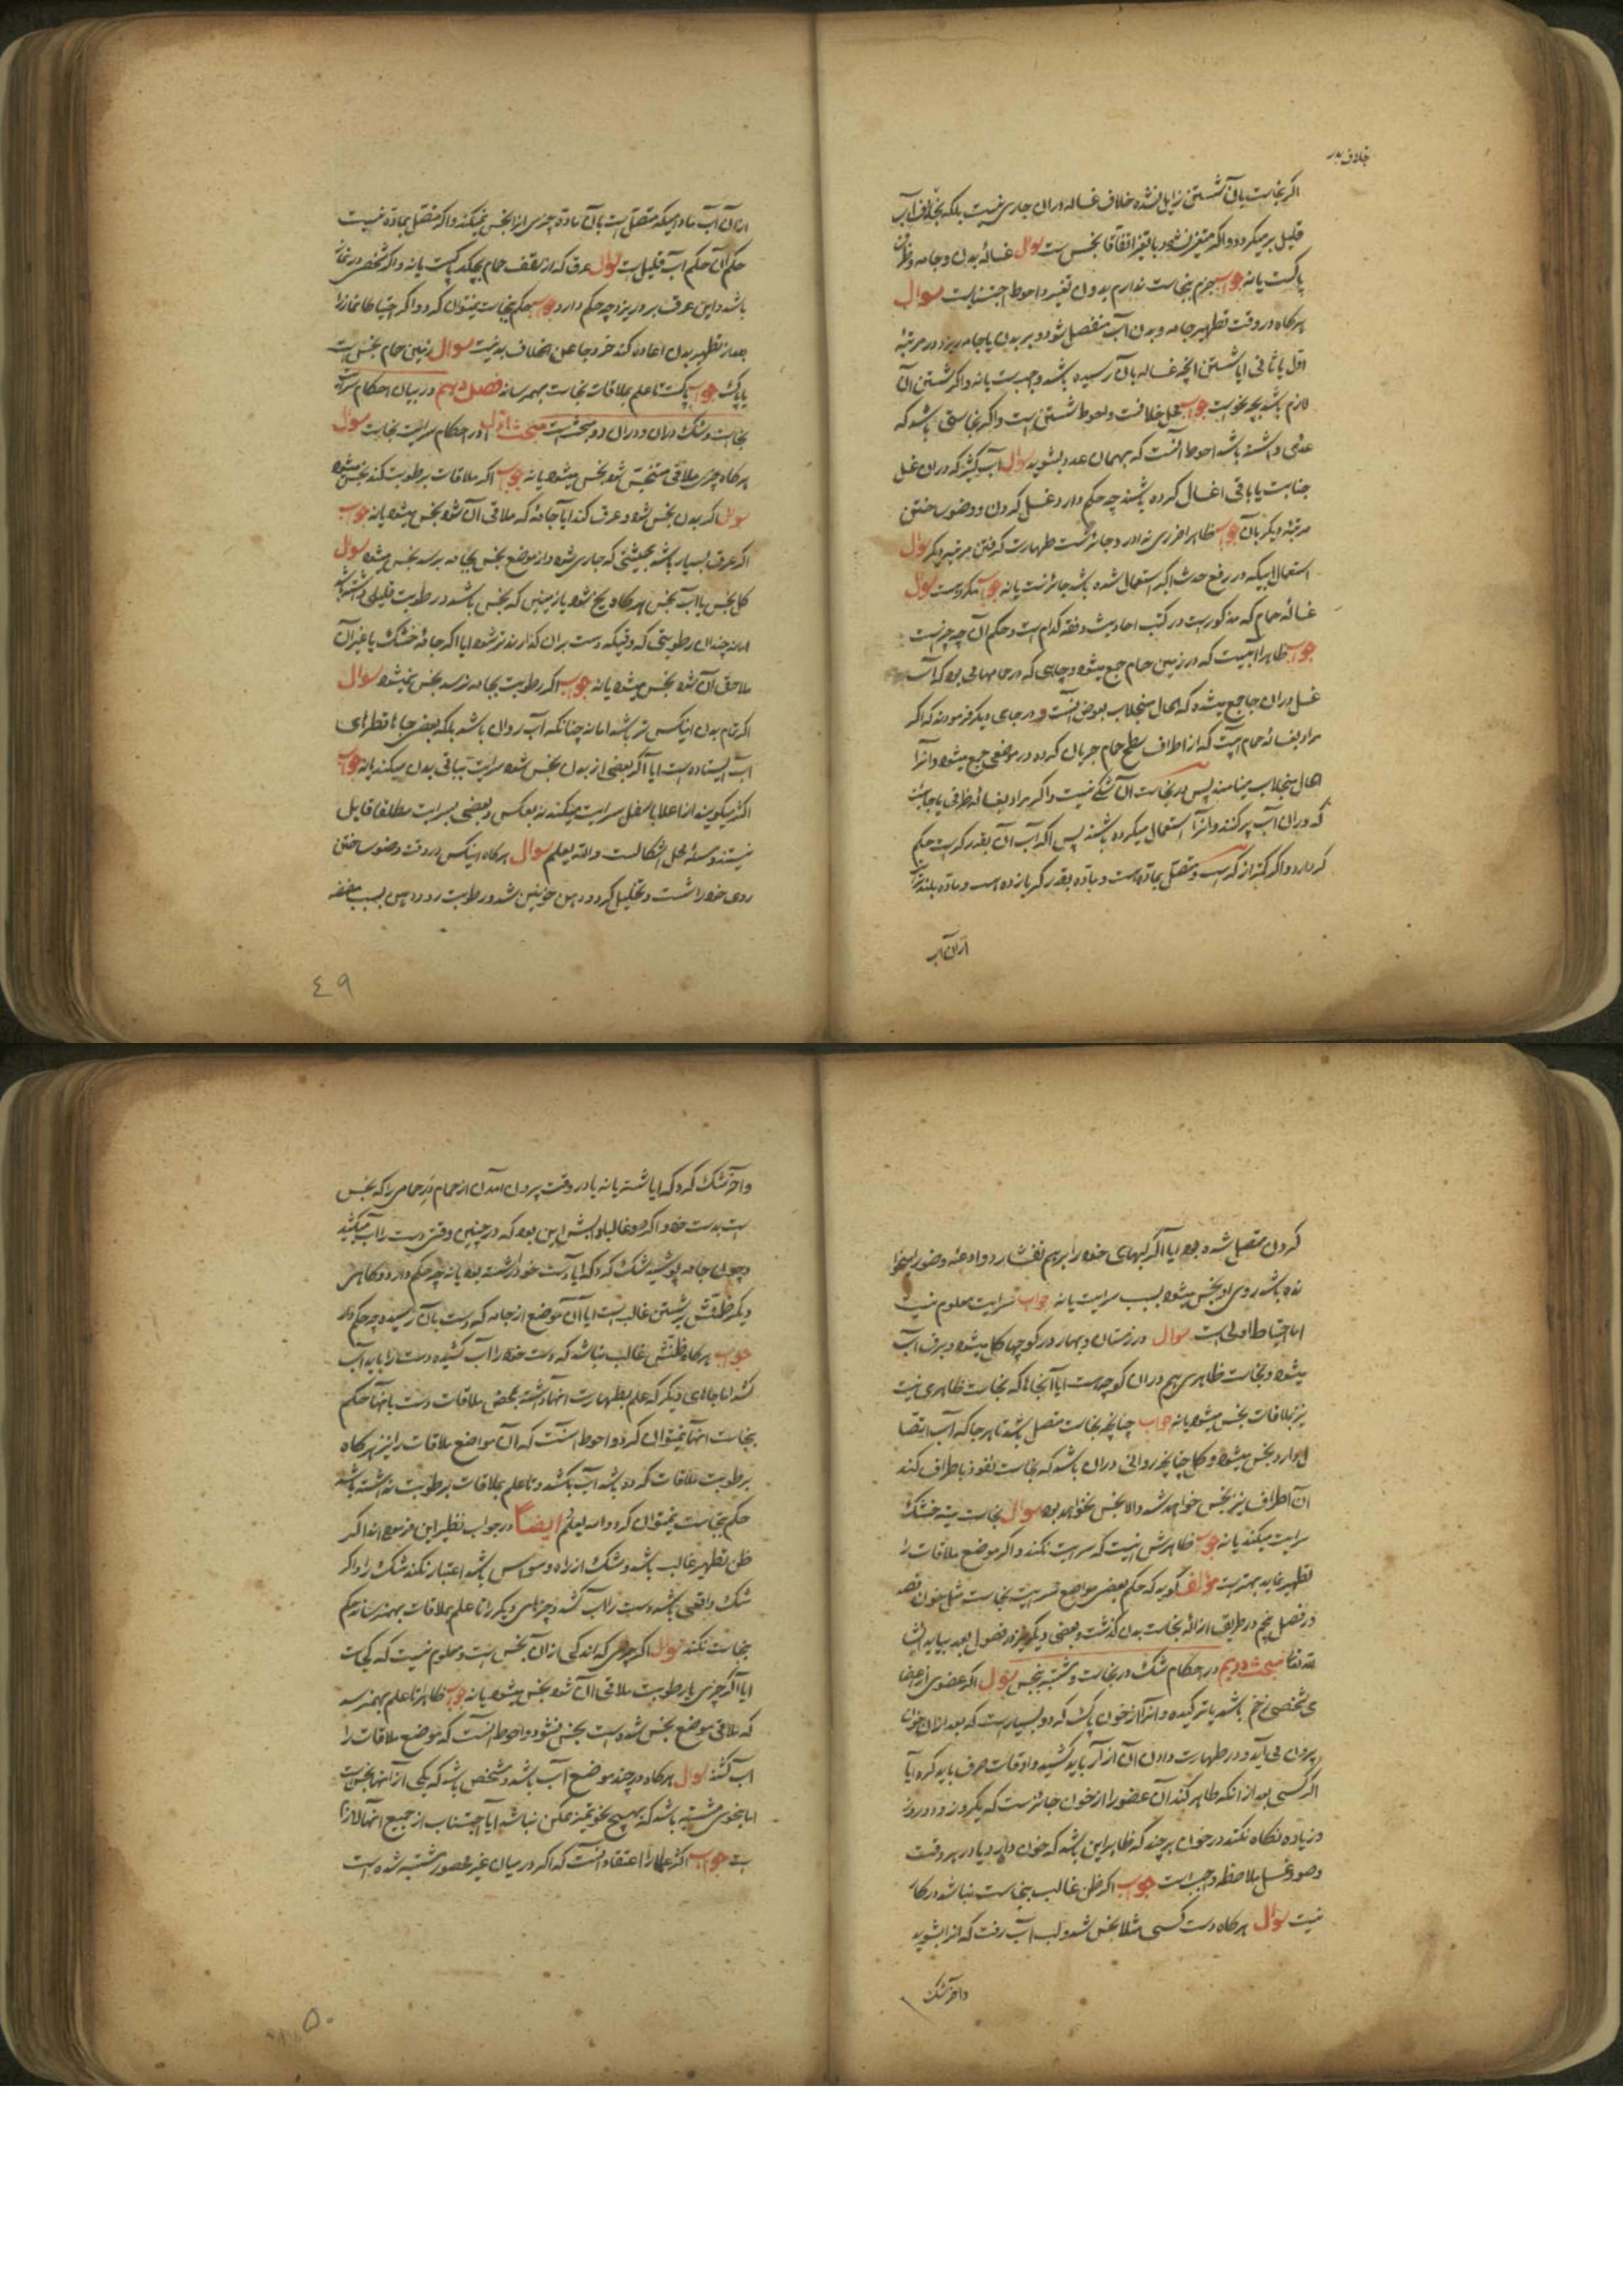 خلاف بدر
اگر نجاست بآن شستن زایل نشده خلاف غساله دران جاری نیست بلکه بخلاف آب
قلیل برمیگردد و اگر متغیر نشود با تغیر اتفاقا نجس است سوال غساله بدن و جامه و ظرف
پاکست یا نه جواب جزم بنجاست ندارم بدون تغیر و احوط اجتنابست سوال
هرگاه در وقت تطهیر جامه و بدن آب منفصل شود و بر بدن یا جامه ریزد در مرتبه
اول یا ثانی ایا شستن انچه غساله بآن رسیده باشد واجبست یا نه و اگر شستن آن
لازم باشد بچه نحو است جواب محل خلافست و احوط شستن است و اگر نجاستی باشد که
عددی داشته باشد احوط آنست که بهمان عدد بشوید سوال آب کثیر که دران غسل
جنابت یا باقی اغسال کرده باشند چه حکم دارد غسل کردن و وضو ساختن
مرتبه دیگر بآن جواب ظاهرا ضرری ندارد و جائزست طهارت گرفتن مرتبه دیگر سوال
استعمال آبیکه در رفع حدث اکبر استعمال شده باشد جائزست یا نه جواب مکروهست سوال
غساله حمام که مذکور است در کتب احادیث و فقه کدام است و حکم آن چه چیزست
جواب ظاهرا آبیست که در زمین حمام جمع میشود و چاهی که در حمامهائی بوده که آب
غسل دران جا جمع میشده که الحال منجلاب بعوض آنست و در جای دیگر فرمودند که اگر
مراد بغساله حمام آبیست که از اطراف سطح حمام جریان کرده در موضعی جمع میشود و آنرا
الحال منجلاب مینامند پس در نجاست آن شکی نیست و اگر مراد بغساله ظرفی یا جائیست
که دران آب پر کنند و آنرا استعمال میکرده باشند پس اگر آب آن بقدر کر است حکم
کر دارد و اگر کمتر از کر است و متصل بماده است و ماده بقدر کر یا زیاده است و ماده بلندتر
ازان آب
ازان آب مادامیکه متصل است بآن ماده چیزی از آن نجس نمیکند و اگر متصل بماده نیست
حکم آن حکم آب قلیل است سوال عرق که از سقف حمام بچکد پاکست یا نه و اگر شخصی در نماز
باشد و این عرق بر او ریزد چه حکم دارد جواب حکم بنجاست نمیتوان کرد و اگر احتیاطا نماز را
بعد از تطهیر بدن اعاده کند خروجا عن الخلاف بد نیست سوال زمین حمام نجس است
یا پاک جواب پاکست تا علم بملاقات نجاست بهم رساند فصل دهم در بیان احکام سرایت
نجاست و شک دران و دران دو مبحثست مبحث اول در احکام سرایت نجاست سوال
هرگاه چیزی ملاقی متنجس شود نجس میشود یا نه جواب اگر ملاقات برطوبت کند نجس میشود
سوال اگر بدن نجس شود و عرق کند ایا جامه که ملاقی آن شود نجس میشود یا نه جواب
اگر عرق بسیار باشد بحیثیتی که جاری شود و از موضع نجس بجامه برسد نجس میشود سوال
گل نجس یا آب نجس هرگاه یخ شود یا زمینی که نجس باشد و رطوبت قلیلی داشته باشد
اما نه چندان رطوبتی که وقتیکه دست بران گذارند تر شود ایا اگر جامه خشک یا غیر آن
ملاحق آن شود نجس میشود یا نه جواب اگر رطوبت بجامه نرسد نجس نمیشود سوال
اگر تمام بدن اینکس تر باشد اما نه چنانکه آب روان باشد بلکه بعضی جاها قطرهای
آب ایستاده است ایا اگر بعضی از بدن نجس شود سرایت بباقی بدن میکند یا نه جواب
اکثر میگویند از اعلا باسفل سرایت میکند نه بعکس و بعضی بسرایت مطلقا قایل
نیستند و مسئله محل اشکالست والله یعلم سوال هرگاه اینکس در وقت وضو ساختن
روی خود را شست و تخلیل کرد و دهن خونین شد و رطوبت رو و دهن بسبب مضمضه
٤٩
کردن متصل شده بود ایا اگر لبهای خود را برهم نفشارد و ادعیه وضو را نخوا
نده باشد روی او نجس میشود بسبب سرایت یا نه جواب سرایت معلوم نیست
اما احتیاط اولی است سوال در زمستان و بهار در کوچها گل میشود و برف آب
میشود و نجاست ظاهری هم دران کوچه هست ایا آنجاها که نجاست ظاهری نیست
نیز بملاقات نجس میشود یا نه جواب چنانچه نجاست متصل باشد تا هر جا که آب اتصا
ل دارد نجس میشود و گل چنانچه روانی دران باشد که نجاست نفوذ باطراف کند
آن اطراف نیز نجس خواهد شد والا نجس نخواهد بود سوال نجاست میته خشک
سرایت میکند یا نه جواب ظاهرش اینست که سرایت نکند و اگر موضع ملاقات را
تطهیر نماید بهتر است مؤلف گوید که حکم بعضی مواضع سرایت نجاست مثل خون فصد
در فصل پنجم در طریق ازاله نجاست بدن گذشت و بعضی دیگر نیز در فصول بعد بیاید انشا
الله تعالی مبحث دویم در احکام شک در نجاست و مشتبه بنجس سوال اگر عضوی از اعضا
ی شخصی زخم باشد یا ترکیده و آنرا از خون پاک کرد و بسیار است که بعد ازان خون
بیرون می آید و در طهارت دادن آن آزار باید کشید و اوقات صرف باید کرد ایا
اگر کسی بعد از انکه طاهر کند آن عضو را از خون جائزست که یکروز و دو روز
و زیاده نگاه نکند در خون هرچند که ظاهر این باشد که خون دارد یا در هر وقت
وضو و غسل ملاحظه واجبست جواب اگر ظن غالب بنجاست نباشد در کار
نیست سوال هرگاه دست کسی مثلا نجس شد و لب آب رفت که انرا بشوید
و آخر شک
و آخر شک کرد که ایا شسته یا نه یا در وقت بیرون آمدن از حمام در حمامی را که نجس
است بدست خود وا کرد و غالبا دابش این بود که در چنین وقتی دست را آب میکشید
و چون جامه پوشید شک کرد که ایا دست خود را شسته بود یا نه چه حکم دارد و گاهی
دیگر ظنش بر شستن غالبست ایا آن موضع از جامه که دست بآن رسیده چه حکم دارد
جواب هرگاه ظنش غالب نباشد که دست خود را آب کشیده دست را باید آب
کشد اما جاهای دیگر که علم بطهارت انها داشته بمحض ملاقات دست بانها حکم
بنجاست انها نمیتوان کرد و احوط آنست که آن مواضع ملاقات را نیز هرگاه
برطوبت ملاقات کرده باشد آب بکشد و تا علم بملاقات برطوبت نداشته باشد
حکم بنجاست نمیتوان کرد والله یعلم ایضاً در جواب نظیر این فرموده اند اگر
ظن تطهیر غالب باشد و شک از راه وسواس باشد اعتبار نکند شک را و اگر
شک واقعی باشد دست را آب کشد و چیزهای دیگر را تا علم بملاقات بهم نرساند حکم
بنجاست نکند سوال اگر چیزی که اندکی ازان نجس است و معلوم نیست که کجاست
ایا اگر چیزی با رطوبت ملاقی آن شود نجس میشود یا نه جواب ظاهرا تا علم بهم نرسد
که ملاقی موضع نجس شده است نجس نشود و احوط آنست که موضع ملاقات را
آب کشد سوال هرگاه در چند موضع آب باشد و مشخص باشد که یکی از آنها نجس است
اما بنحوی مشتبه باشد که بهیچ نحو تمیز ممکن نباشد ایا اجتناب از جمیع انها لازم
است جواب اکثر علما را اعتقاد آنست که اگر در میان غیر محصور مشتبه شده است
٥٠